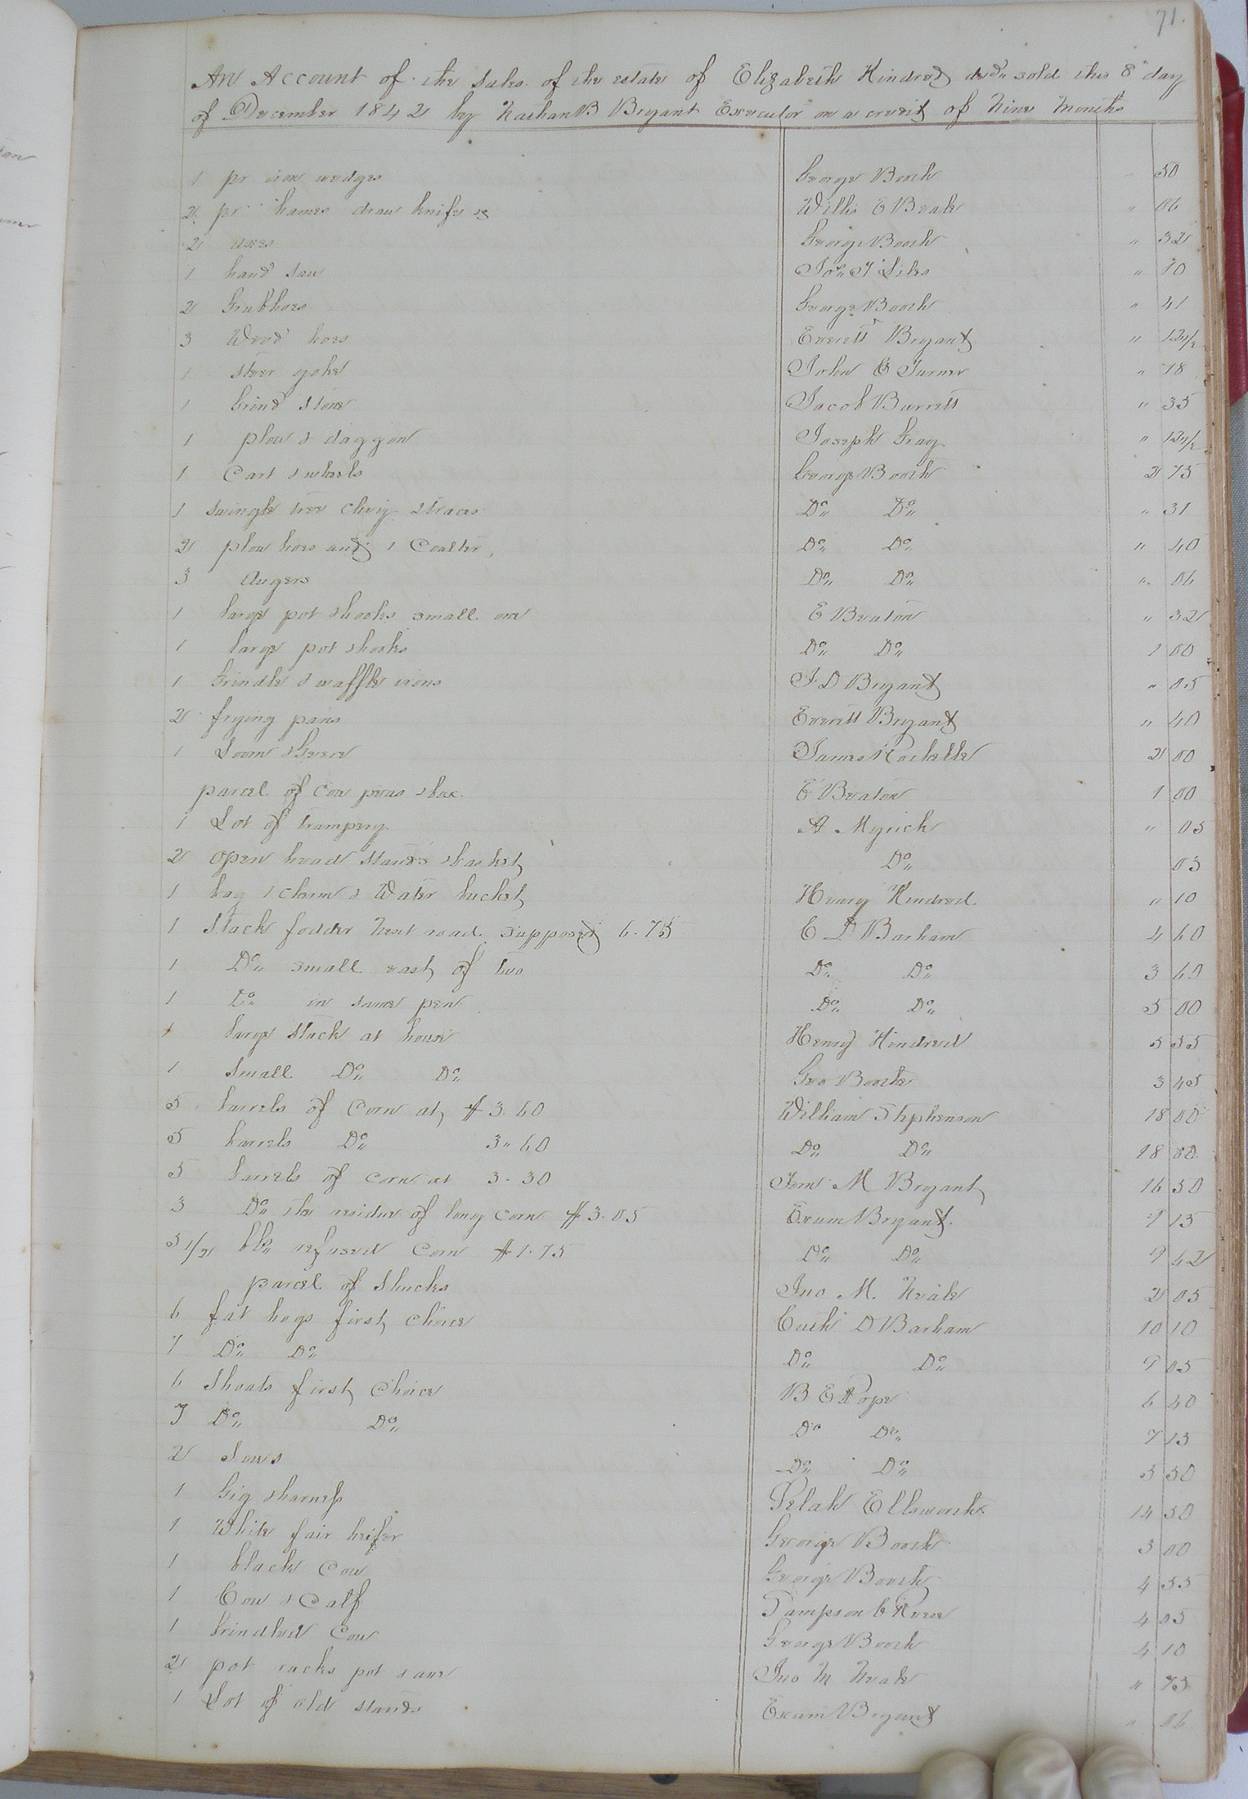 71.
An Account of the Sales of the estate of Elizabeth Kindred decd sold this 8 day
of December 1842 by Nathan B Bryant Executor on a credit of Nine Months
1 pr iron wedges George Booth 50
2 pr hames draw knife &c Willis E Beale " 06
2 axes George Booth " 32
1 hand saw " 70
2 Grubhoes George Booth " 41
3 Weed hoes Everitt Bryant " 13 1/2
1 steer yoke John Turner " 18
1 Grind Stone Jacob Barrett " 35
1 plow & daggon Joseph Gray " 13 1/2
1 Cart & wheels George Booth 2 75
1 swingle tree & traces Do Do " 31
2 plow hoes and 1 Coulter Do Do " 40
3 Augers Do Do " 06
1 large pot & hooks small one E Beaton " 32
1 large pot & hooks Do Do 1 00
1 Griddle & waffle irons J D Bryant " 05
2 frying pans Everitt Bryant " 40
1 Loom & Geer James Rochelle 2 00
parcel of Cow peas & box E Beaton 1 00
1 Lot of trumpery A Myrick " 05
2 open head stands & basket Do 05
1 keg 1 churn & Water bucket Henry Kindred " 10
1 Stack fodder Next road supposed 6.75 E D Barham 4 60
1 Do small east of two Do Do 3 60
1 Do in same pen Do Do 5 00
1 large Stack at house Henry Kindred 5 55
1 small Do Do Geo Booth 3 45
5 barrels of Corn at $3.60 William Stephenson 18 00
5 barrels Do 3.60 Do Do 18 00
5 barrels of corn at 3.30 M Bryant 16 50
3 Do the residue of long corn $3.05 Exum Bryant 9 15
5 1/2 bls refused Corn $1.75 Do Do 9 42
parcel of Shucks Jno M. Neale 2 05
6 fat hogs first Choice D Barham 10 10
7 Do Do Do Do 9 05
6 Shoats first Choice B E Pope 6 40
7 Do Do Do Do 7 15
2 Sows Do Do 5 50
1 Gig & harness Pelah Ellsworth 14 50
1 White fair heifer George Booth 3 00
1 black Cow George Booth 4 55
1 Cow & Calf Sampson C Reese 4 05
1 brindled Cow George Booth 4 10
2 pot racks pot & Jno M Neale " 75
1 Lot of old stands Exum Bryant " 06